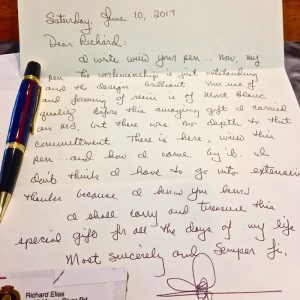 Saturday, June 10, 2017
Dear Richard:
I write with your pen... now, my
pen. The workmanship is just outstanding
and the design brilliant. This use of
and forming of resin is of most
quality. Before this amazing gift I carried
an MB, but there was no depth to that
commitment. There is here, with this
pen... and how I came by it. I
don't think I have to go into extensive
thanks because I know you know.
I shall carry and treasure this
special gift for all the days of my life
Most sincerely and Semper fi,
Richard Elias